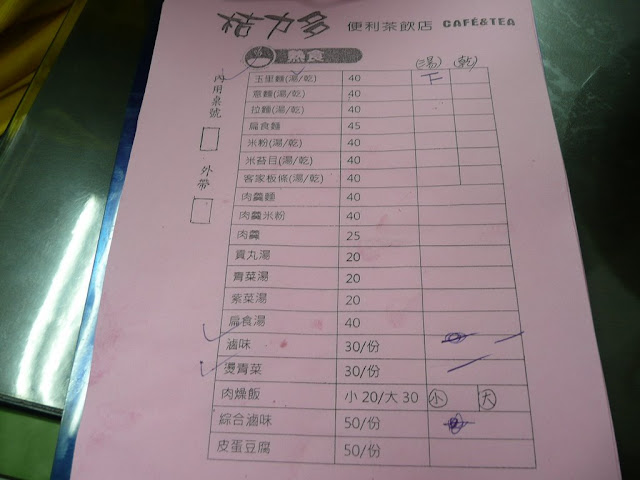 桔力多 便利茶飲店 CAFÉ&TEA
熱食
(湯) (乾)
內用桌號
外帶
玉里麵(湯/乾) 40 下
意麵(湯/乾) 40
拉麵(湯/乾) 40
扁食麵 45
米粉(湯/乾) 40
米苔目(湯/乾) 40
客家板條(湯/乾) 40
肉羹麵 40
肉羹米粉 40
肉羹 25
貢丸湯 20
青菜湯 20
紫菜湯 20
扁食湯 40
滷味 30/份
燙青菜 30/份
肉燥飯 小20/大30 小 大
綜合滷味 50/份
皮蛋豆腐 50/份